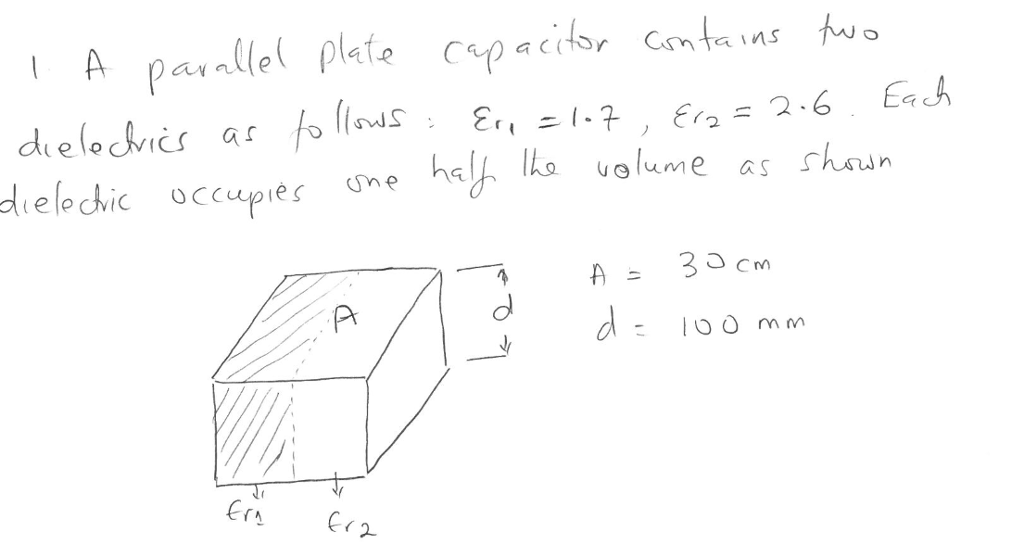 1. A parallel plate capacitor contains two
dielectrics as follows: εr1 = 1.7, εr2 = 2.6. Each
dielectric occupies one half the volume as shown
A = 30 cm
d = 100 mm
A
d
εr1
εr2